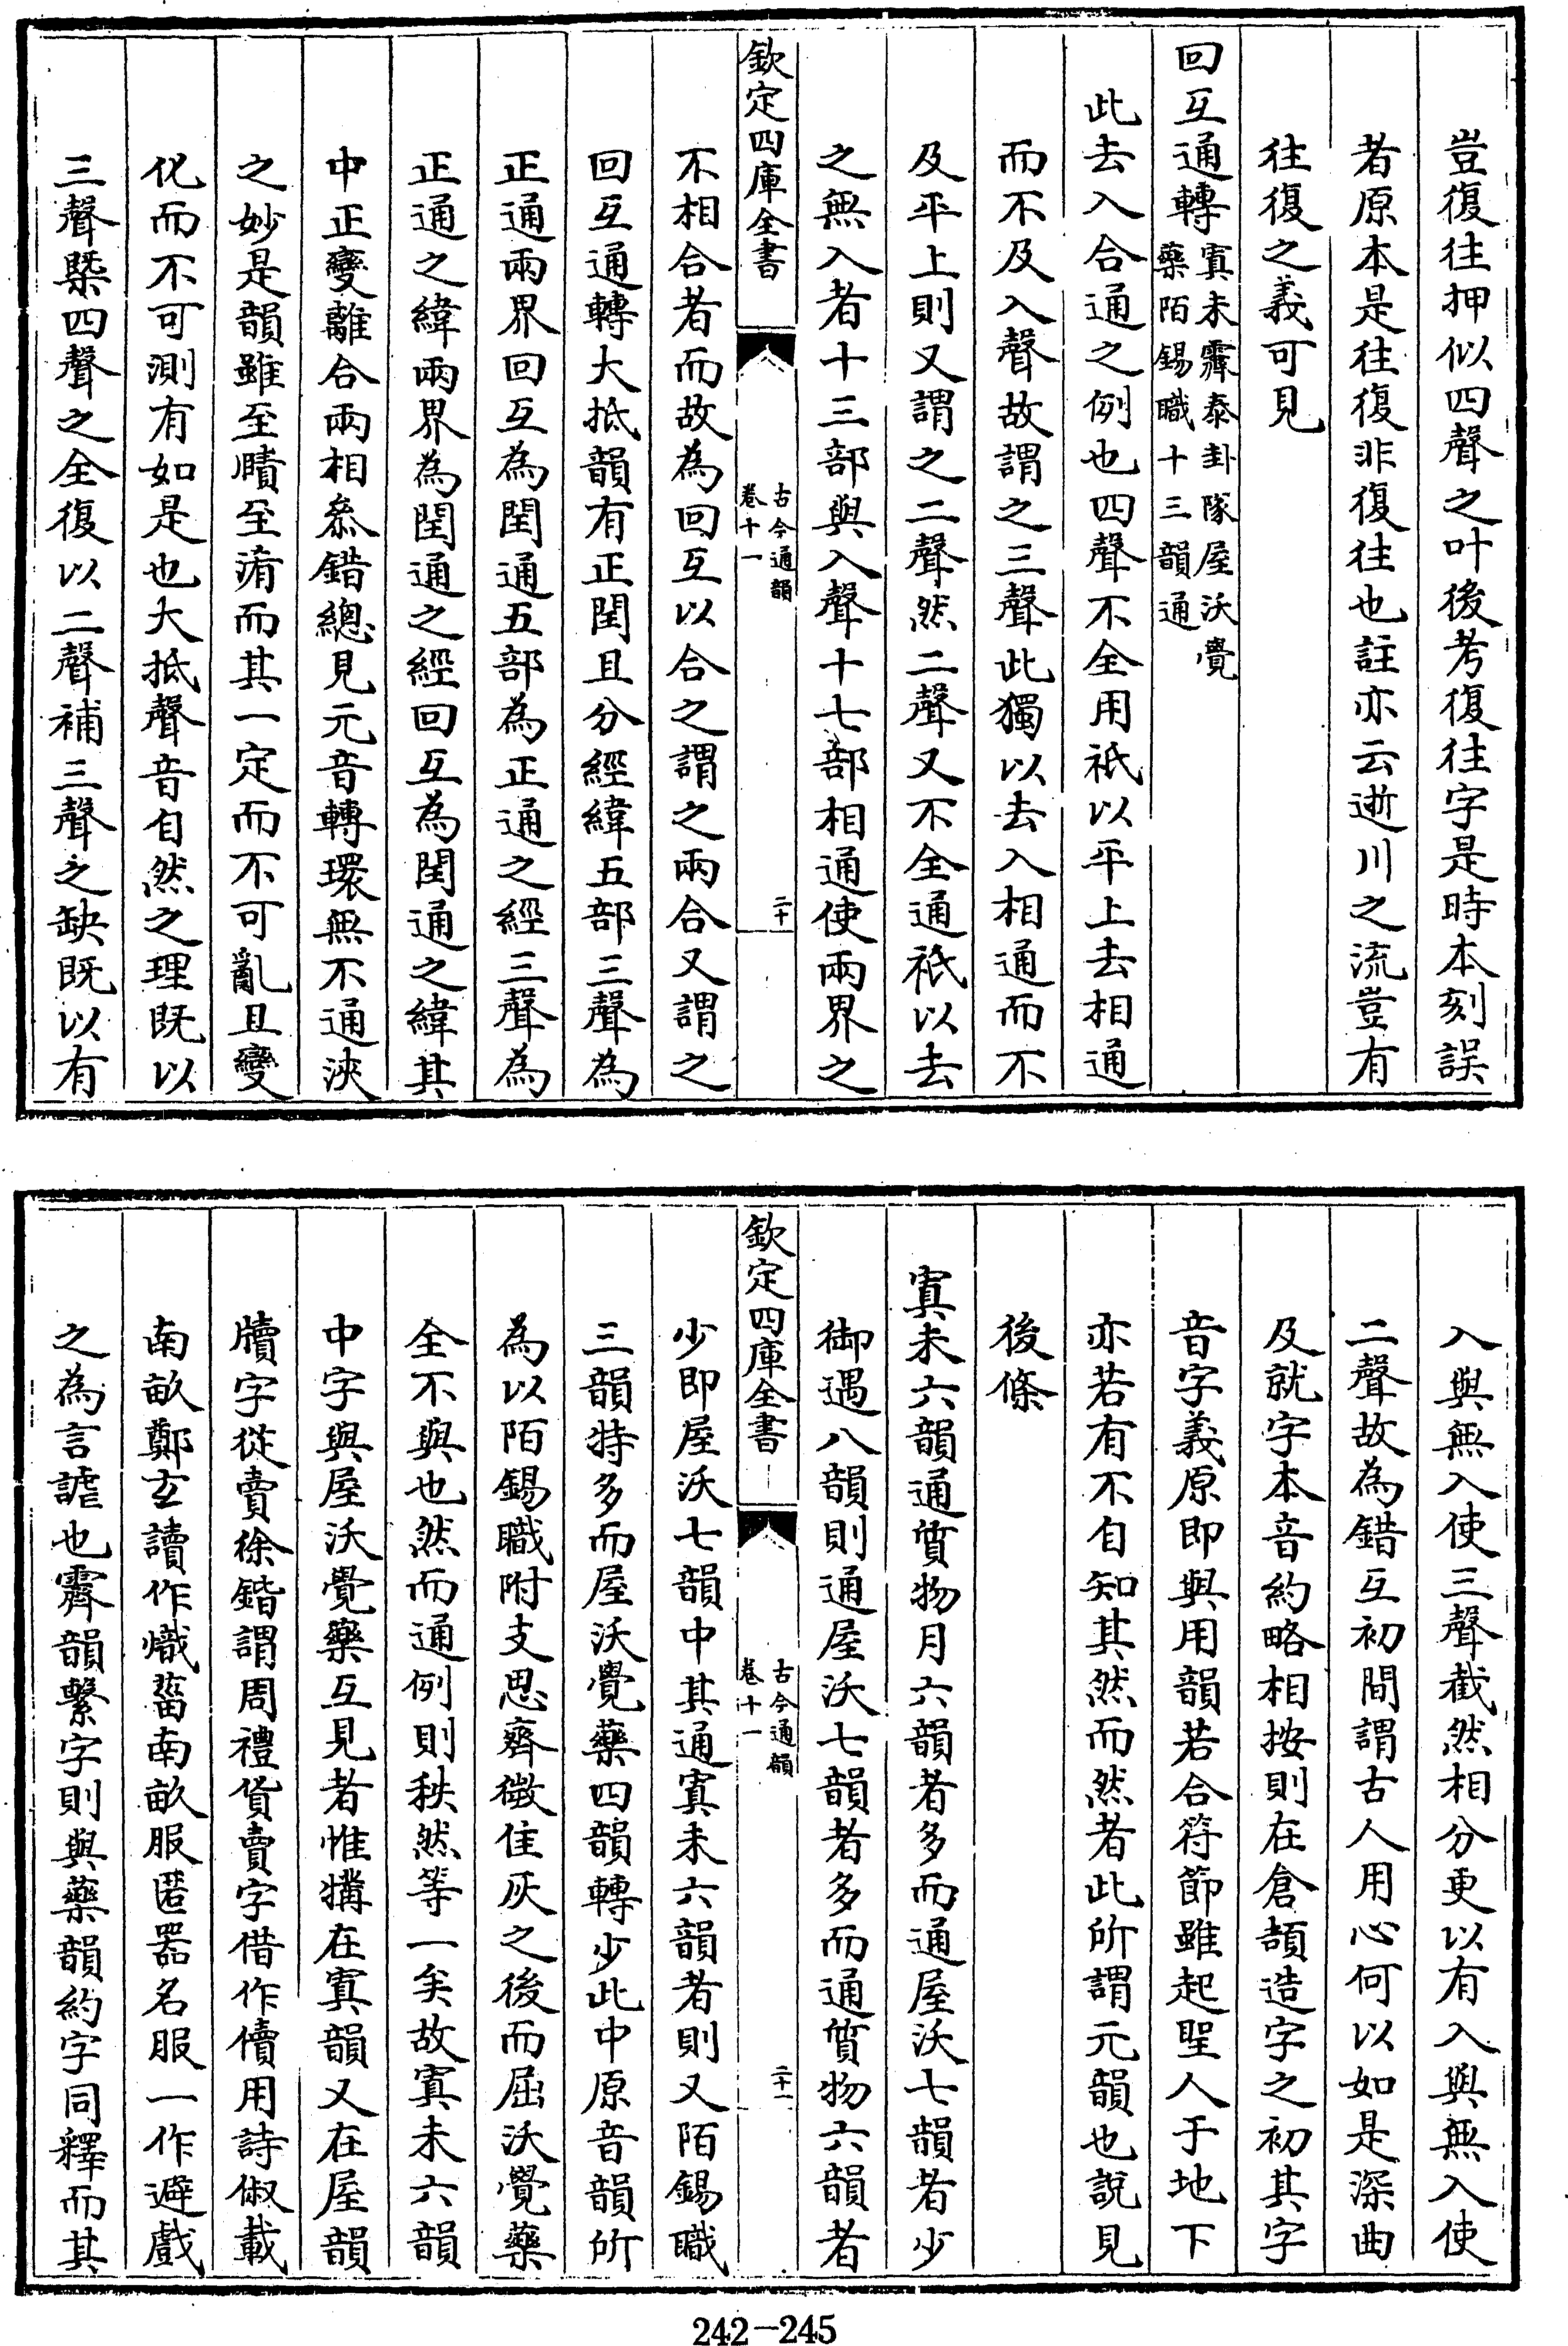 豈復往押似四聲之叶後考復往字是時本刻誤
者原本是往復非復往也註亦云逝川之流豈有
往復之義可見
回互通轉寘未霽泰卦隊屋沃覺
藥陌錫職十三韻通
此去入合通之例也四聲不全用祇以平上去相通
而不及入聲故謂之三聲此獨以去入相通而不
及平上則又謂之二聲然二聲又不全通祇以去
之無入者十三部與入聲十七部相通使兩界之
欽定四庫全書
古今通韻
卷十一
二十
不相合者而故為回互以合之謂之兩合又謂之
回互通轉大抵韻有正閏且分經緯五部三聲為
正通兩界回互為閏通五部為正通之經三聲為
正通之緯兩界為閏通之經回互為閏通之緯其
中正變離合兩相叅錯總見元音轉環無不通浹
之妙是韻雖至賾至淆而其一定而不可亂且變
化而不可測有如是也大抵聲音自然之理既以
三聲槩四聲之全復以二聲補三聲之缺既以有
入與無入使三聲截然相分更以有入與無入使
二聲故為錯互初間謂古人用心何以如是深曲
及就字本音約略相按則在倉頡造字之初其字
音字義原即與用韻若合符節雖起聖人于地下
亦若有不自知其然而然者此所謂元韻也說見
後條
寘未六韻通質物月六韻者多而通屋沃七韻者少
御遇八韻則通屋沃七韻者多而通質物六韻者
欽定四庫全書
古今通韻
卷十一
二十一
少即屋沃七韻中其通寘未六韻者則又陌錫職
三韻特多而屋沃覺藥四韻轉少此中原音韻所
為以陌錫職附支思齊微佳灰之後而屈沃覺藥
全不與也然而通例則秩然等一矣故寘未六韻
中字與屋沃覺藥互見者惟犕在寘韻又在屋韻
牘字從賣徐鍇謂周禮貨賣字借作儥用詩俶載
南畝鄭玄讀作熾菑南畝服匿器名服一作避戲
之為言謔也霽韻繫字則與藥韻約字同釋而其
242-245